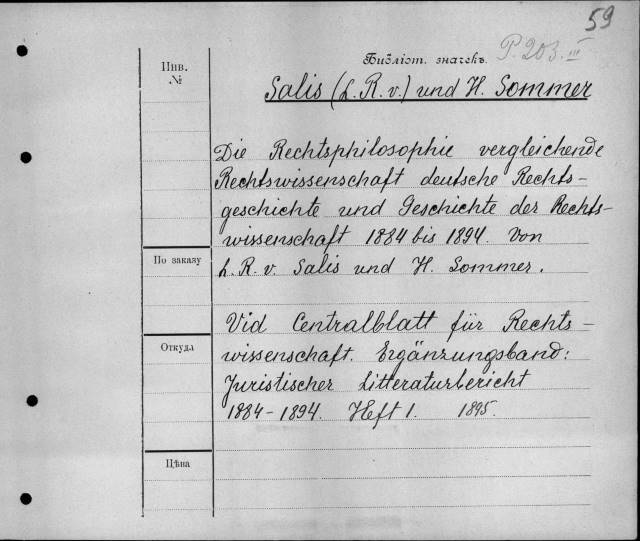 59
Библіот. значекъ. P. 203. III
Инв.
№
Salis (L. R. v.) und H. Sommer
Die Rechtsphilosophie vergleichende
Rechtswissenschaft deutsche Rechts-
geschichte und Geschichte der Rechts-
wissenschaft 1884 bis 1894. Von
По заказу
L. R. v. Salis und H. Sommer.
Vid Centralblatt für Rechts-
Откуда
wissenschaft. Ergänzungsband:
Juristischer Litteraturbericht
1884-1894. Heft 1. 1895.
Цѣна